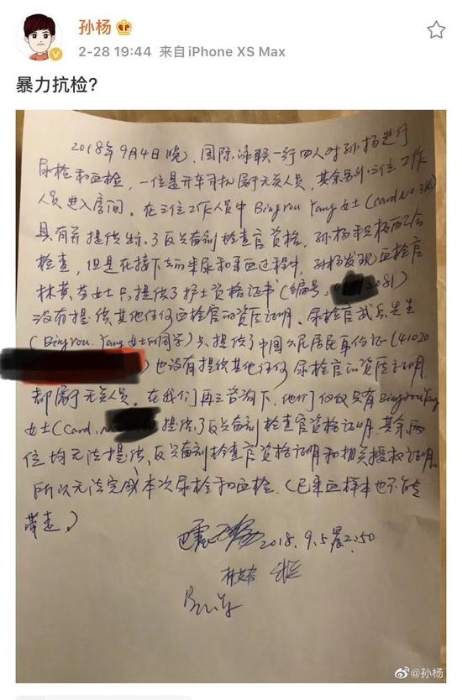 孙杨
2-28 19:44 来自iPhone XS Max
暴力抗检?
2018年9月4日晚,国际泳联一行四人对孙杨进行
尿检和血检,一位是开车司机属于无关人员,其余另外三位工作
人员进入房间。在三位工作人员中Bingrou Yang女士(card.no.
具有并提供出了反兴奋剂检查官资格。孙杨积极配合
检查,但是在接下来的采尿和采血过程中,孙杨发现血检官
女士只提供了护士资格证书(编号。081)
没有提供其他任何血检官的资质证明。尿检官 先生
(Bingrou Yang女士的同学)只提供了中国公民居民身份证(41020
)也没有提供其他任何尿检官的资质证明
都属于无关人员。在我们再三咨询下,他们仅仅只有Bingrou Yang
女士(card.no 提供了反兴奋剂检查官资格证明,其余两
位均无法提供反兴奋剂检查官资格证明和相关授权证明。
所以无法完成本次尿检和血检。(已采血样本也不能
带走。)
2018.9.5晨2:50
@孙杨